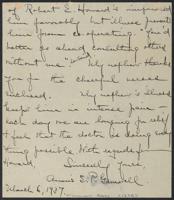 of Robert E. Howard's impressed
him favorably but illness prevents
him from cooperating. "You'd
better go ahead consulting others
without me" My nephew thanks
you for the cheerful verses
enclosed. My nephew's illness
keeps him in intense pain—
each day we are longing for relief
I feel that the doctor is doing every
thing possible With regards,
Howard.
Sincerely yours,
Annie E. P. Gamwell
March 6, 1937.